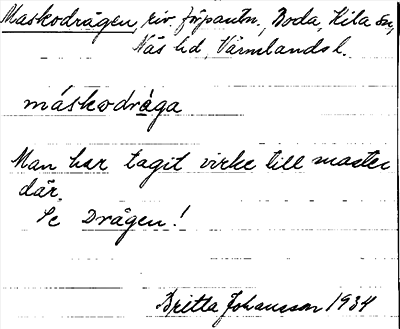 Maskodrågen, riv. förpantn., Boda, Kila sn,
Näs hd, Värmlands l.
máskodrå̀ga
Man har tagit virke till master
där.
Se Drågen!
Britta Johansson 1934